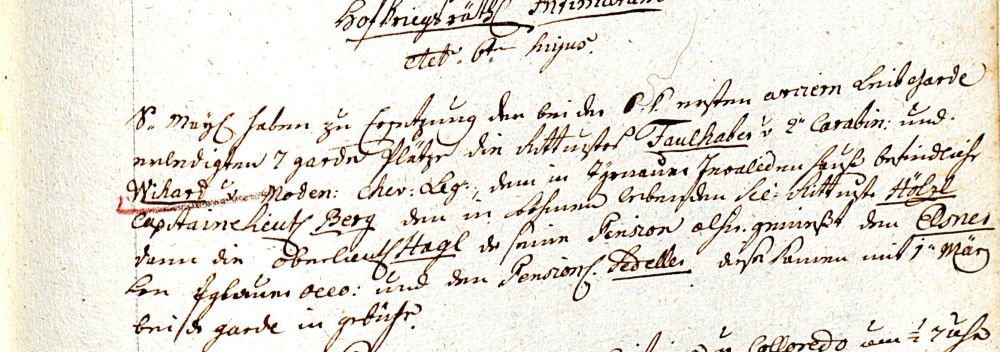 Hof Kriegsräthl. Intimatum
dtto. 6ten hujus.
S. Mayt haben zu Ersetzung der bei der k. k. ersten arcieren Leib Garde
erledigten 7 garde Plätze die Rittmstr Faulhaber v 2n Carabin: und
Wihard v Moden: Chev: Leg:, dem in Invaliden Hauß befindliche
Capitainlieut Berg den in lebenden Rittmstr Hölzl
dann die Oberlieut Hagl der seine Pension den Elsner
und den Pension. Fedeller diese kamen mit 1n März
bei der garde in gebühr.
Colloredo um ½ 7 Uhr